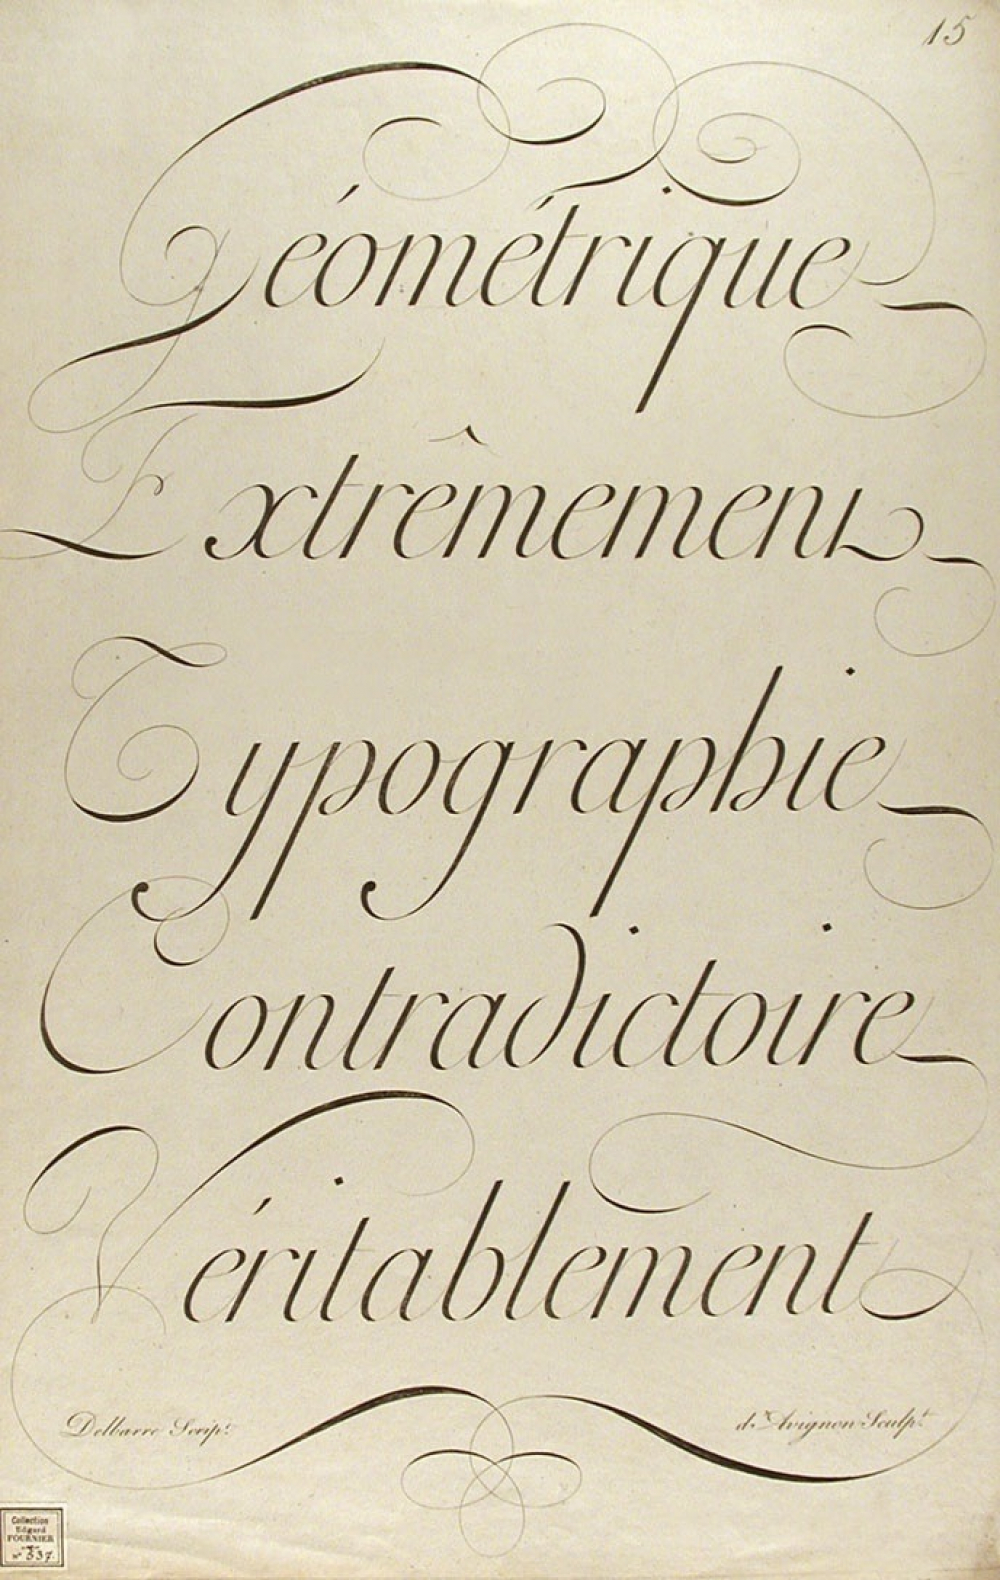 15
Géométrique
Extrêmement
Typographie
Contradictoire
Véritablement
Delbarre Scrip.t d'Avignon Sculp.t
Collection
Edgard
FOURNIER
N° 337.